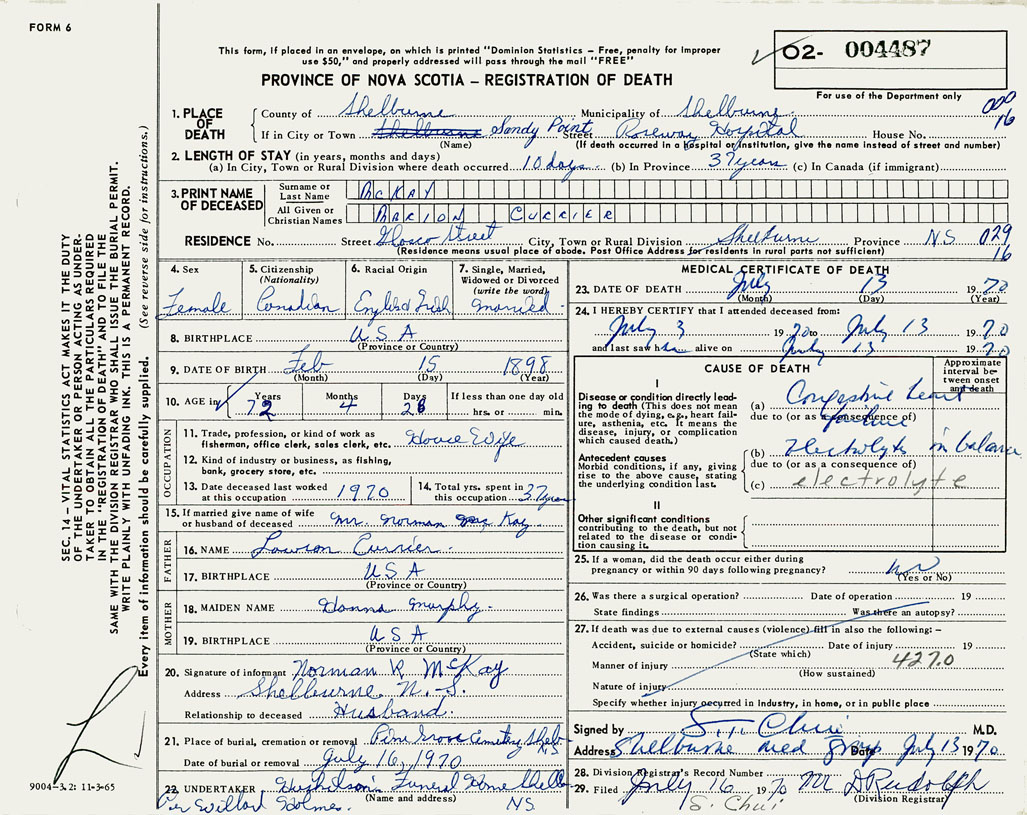 FORM 6
This form, if placed in an envelope, on which is printed "Dominion Statistics – Free, penalty for improper
use $50," and properly addressed will pass through the mail "FREE"
PROVINCE OF NOVA SCOTIA – REGISTRATION OF DEATH
02- 004487
For use of the Department only
000
16
1. PLACE OF DEATH
County of Shelburne Municipality of Shelburne
If in City or Town Shelburne Sandy Point Street Roseway Hospital House No.
(Name) (If death occurred in a Hospital or Institution, give the name instead of street and number)
2. LENGTH OF STAY (in years, months and days)
(a) In City, Town or Rural Division where death occurred 10 days (b) In Province 37 years (c) In Canada (if immigrant)
3. PRINT NAME OF DECEASED
Surname or Last Name McKAY
All Given or Christian Names MARION CURRIER
RESIDENCE No. Street Street City, Town or Rural Division Shelburne Province N.S 029
(Residence means usual place of abode. Post Office Address for residents in rural parts not sufficient) 16
4. Sex Female
5. Citizenship (Nationality) Canadian
6. Racial Origin English Irish
7. Single, Married, Widowed or Divorced (write the word) married
8. BIRTHPLACE U S A
(Province or Country)
9. DATE OF BIRTH Feb 15 1898
(Month) (Day) (Year)
10. AGE in Years 72 Months 4 Days 28 If less than one day old hrs. or min.
OCCUPATION
11. Trade, profession, or kind of work as fisherman, office clerk, sales clerk, etc. House Wife
12. Kind of industry or business, as fishing, bank, grocery store, etc.
13. Date deceased last worked at this occupation 1970
14. Total yrs. spent in this occupation 37 years
15. If married give name of wife or husband of deceased Mr. Norman Mc Kay
FATHER
16. NAME Lawson Currier
17. BIRTHPLACE U S A
(Province or Country)
MOTHER
18. MAIDEN NAME Hanna Murphy
19. BIRTHPLACE U S A
(Province or Country)
20. Signature of informant Norman R McKay
Address Shelburne N.S.
Relationship to deceased Husband
21. Place of burial, cremation or removal Pine Grove Cemetery Shelb
Date of burial or removal July 16, 1970
22. UNDERTAKER Funeral Home
(Name and address)
Per Willard Holmes N.S
MEDICAL CERTIFICATE OF DEATH
23. DATE OF DEATH July 13 1970
(Month) (Day) (Year)
24. I HEREBY CERTIFY that I attended deceased from:
July 3 1970 to July 13 1970
and last saw her alive on July 13 1970
CAUSE OF DEATH
Approximate interval between onset and death
I
Disease or condition directly leading to death (This does not mean the mode of dying, e.g., heart failure, asthenia, etc. It means the disease, injury, or complication which caused death.)
(a) Congestive heart failure
due to (or as a consequence of)
Antecedent causes
Morbid conditions, if any, giving rise to the above cause, stating the underlying condition last.
(b) Electrolyte in balance
due to (or as a consequence of)
(c) electrolyte
II
Other significant conditions contributing to the death, but not related to the disease or condition causing it.
25. If a woman, did the death occur either during pregnancy or within 90 days following pregnancy? no
(Yes or No)
26. Was there a surgical operation? Date of operation 19
State findings Was there an autopsy?
27. If death was due to external causes (violence) fill in also the following: –
Accident, suicide or homicide? Date of injury 19
(State which)
Manner of injury 4270
(How sustained)
Nature of injury
Specify whether injury occurred in Industry, in home, or in public place
Signed by S. Chui M.D.
Address Shelburne med group Date July 13 1970
28. Division Registrar's Record Number
29. Filed July 16 1970 D Rudolph
S. Chui (Division Registrar)
SEC. 14 – VITAL STATISTICS ACT MAKES IT THE DUTY
OF THE UNDERTAKER OR PERSON ACTING AS UNDER-
TAKER TO OBTAIN ALL THE PARTICULARS REQUIRED
IN THE "REGISTRATION OF DEATH" AND TO FILE THE
SAME WITH THE DIVISION REGISTRAR WHO SHALL ISSUE THE BURIAL PERMIT.
WRITE PLAINLY WITH UNFADING INK. THIS IS A PERMANENT RECORD.
Every item of information should be carefully supplied. (See reverse side for instructions.)
9004-3.2: 11-3-65